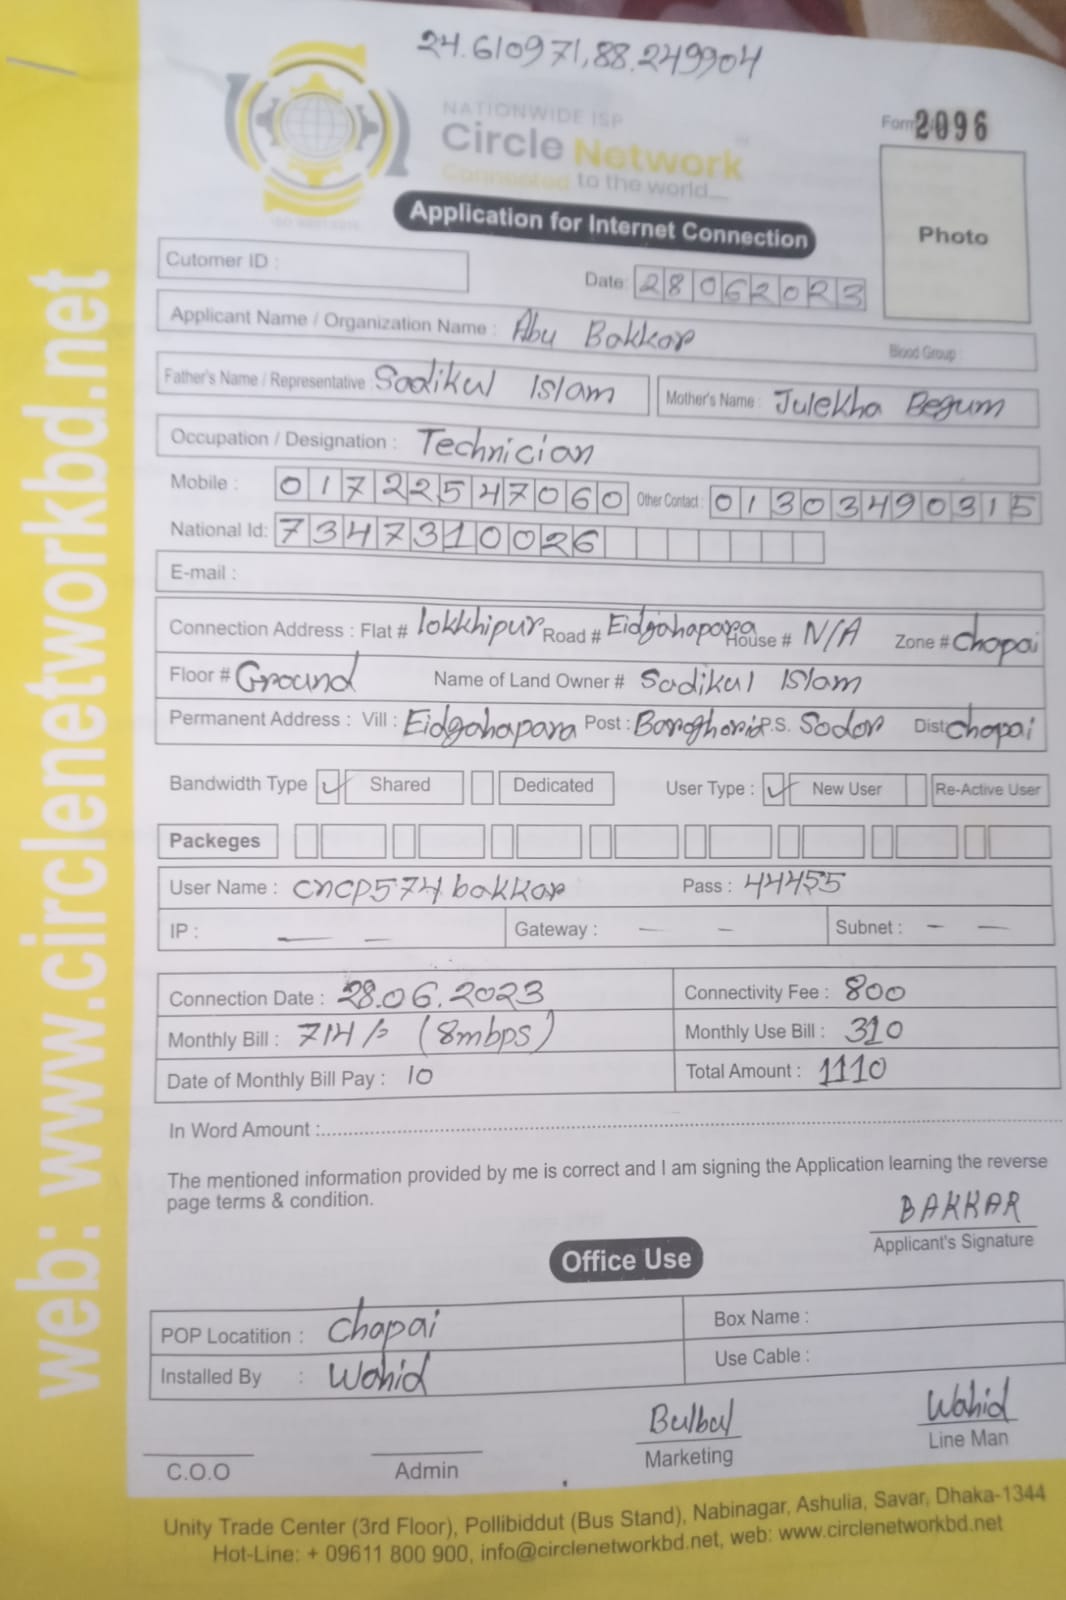 24.610971,88.249904
NATIONWIDE ISP
Circle Network
Connected to the world....
Form 2096
Application for Internet Connection
Photo
Cutomer ID :
Date: 28062023
Applicant Name / Organization Name : Abu Bakkar
Blood Group :
Father's Name / Representative : Sadikul Islam Mother's Name : Julekha Begum
Occupation / Designation : Technician
Mobile : 01722547060 Other Contact : 01303490315
National Id: 7347310026
E-mail :
Connection Address : Flat # lokkhipur Road # Eidgahapara House # N/A Zone # Chapai
Floor # Ground Name of Land Owner # Sadikul Islam
Permanent Address : Vill : Eidgahapara Post : Baroghoria P.S. Sodor Dist Chapai
Bandwidth Type Shared Dedicated User Type : New User Re-Active User
Packeges
User Name : cncp574bakkar Pass : 44455
IP : — — Gateway : — — Subnet : — —
Connection Date : 28.06.2023 Connectivity Fee : 800
Monthly Bill : 714/= (8mbps) Monthly Use Bill : 310
Date of Monthly Bill Pay : 10 Total Amount : 1110
In Word Amount :
The mentioned information provided by me is correct and I am signing the Application learning the reverse
page terms & condition.
BAKKAR
Applicant's Signature
Office Use
POP Locatition : Chapai Box Name :
Installed By : Wahid Use Cable :
Bulbul Wahid
C.O.O Admin Marketing Line Man
Unity Trade Center (3rd Floor), Pollibiddut (Bus Stand), Nabinagar, Ashulia, Savar, Dhaka-1344
Hot-Line: + 09611 800 900, info@circlenetworkbd.net, web: www.circlenetworkbd.net
web: www.circlenetworkbd.net